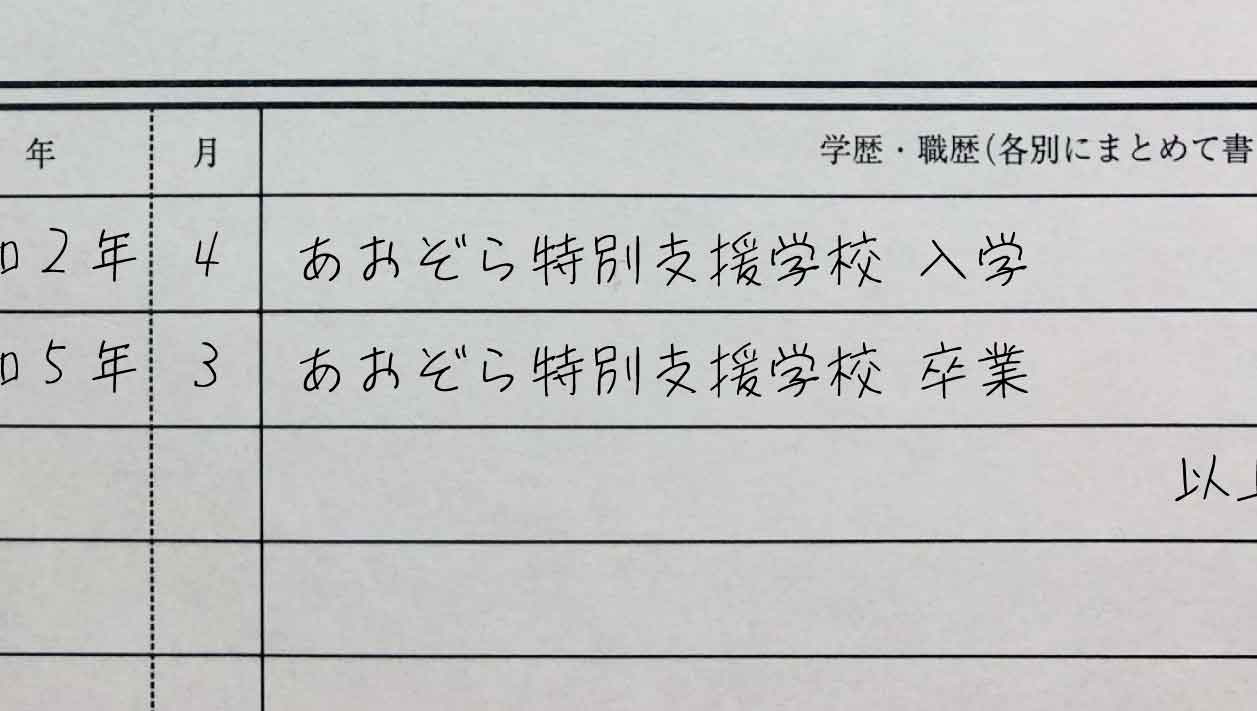 年 月 学歴・職歴(各別にまとめて書
2年 4 あおぞら特別支援学校 入学
5年 3 あおぞら特別支援学校 卒業
以上